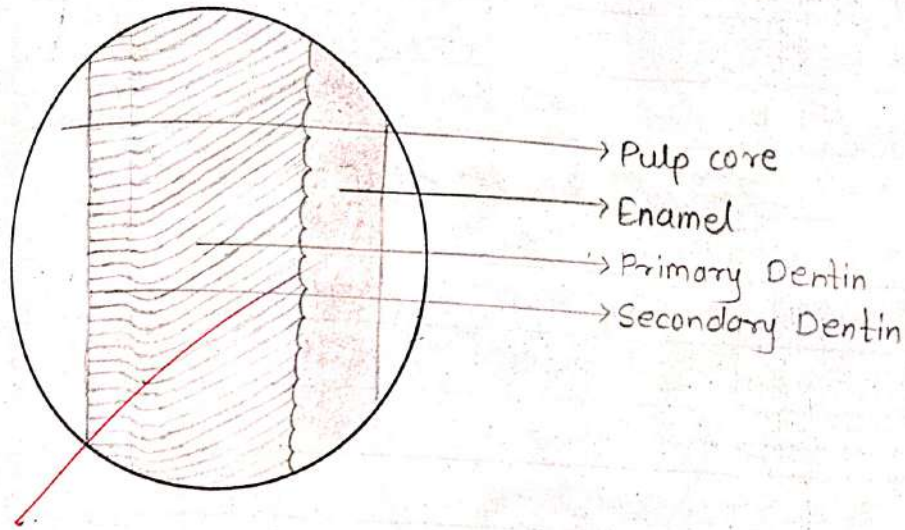 Pulp core
Enamel
Primary Dentin
Secondary Dentin